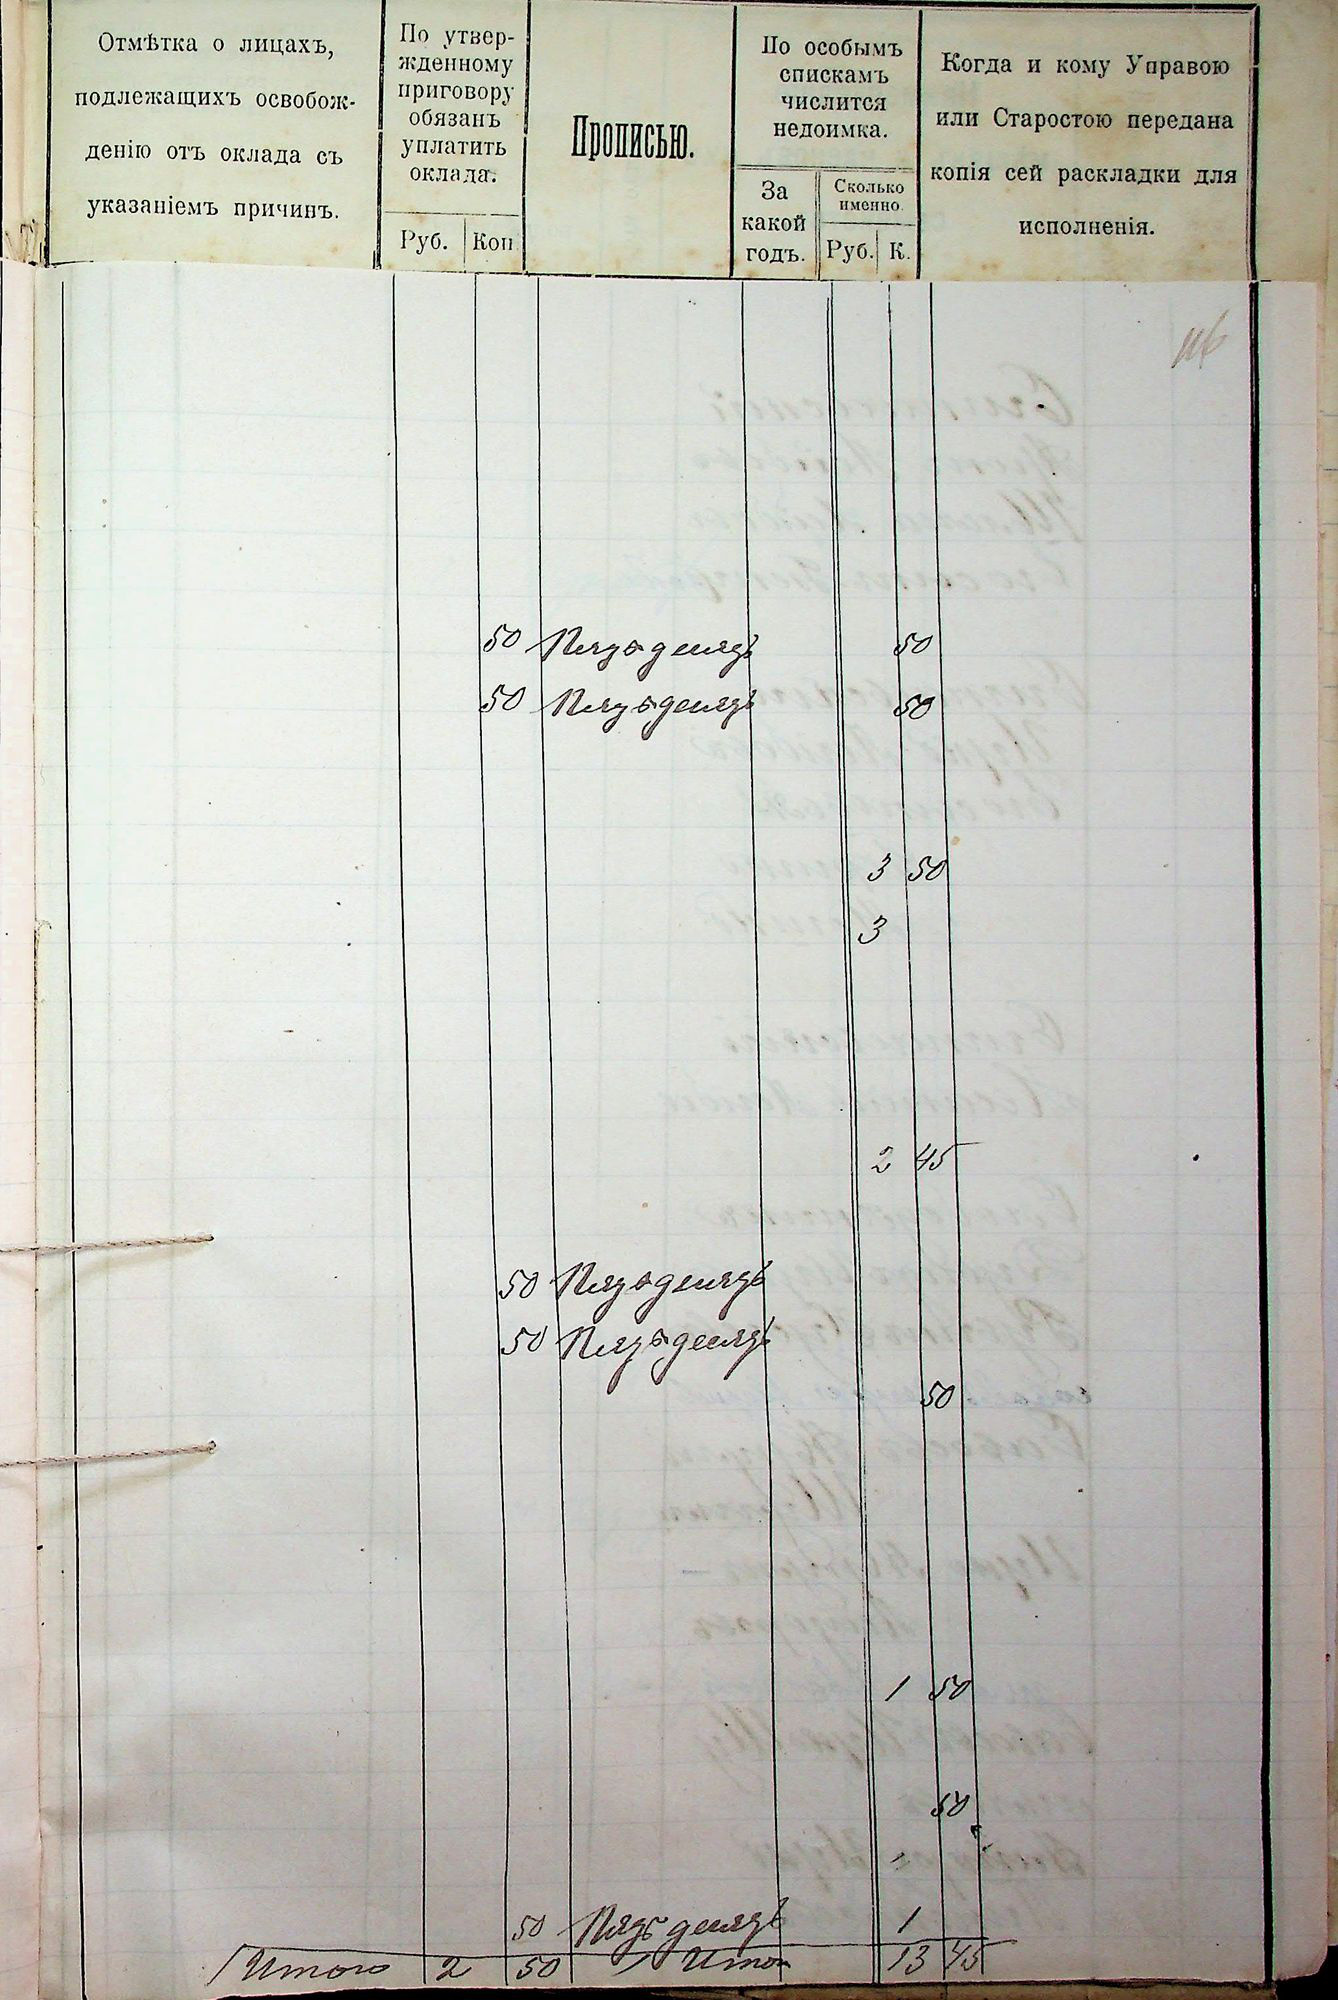 Отмѣтка о лицахъ,
подлежащихъ освобож-
денію отъ оклада съ
указаніемъ причинъ.
По утвер-
жденному
приговору
обязанъ
уплатить
оклада.
Руб. Коп
Прописью.
По особымъ
спискамъ
числится
недоимка.
За
какой
годъ.
Сколько
именно
Руб. К.
Когда и кому Управою
или Старостою передана
копія сей раскладки для
исполненія.
116
50 Пядьдесядъ 50
50 Пядьдесядъ 50
3 50
3
2 45
50 Пядьдесядъ
50 Пядьдесядъ
50
1 50
50
50 Пядьдесядъ 1
Итого 2 50 Итого 13 45